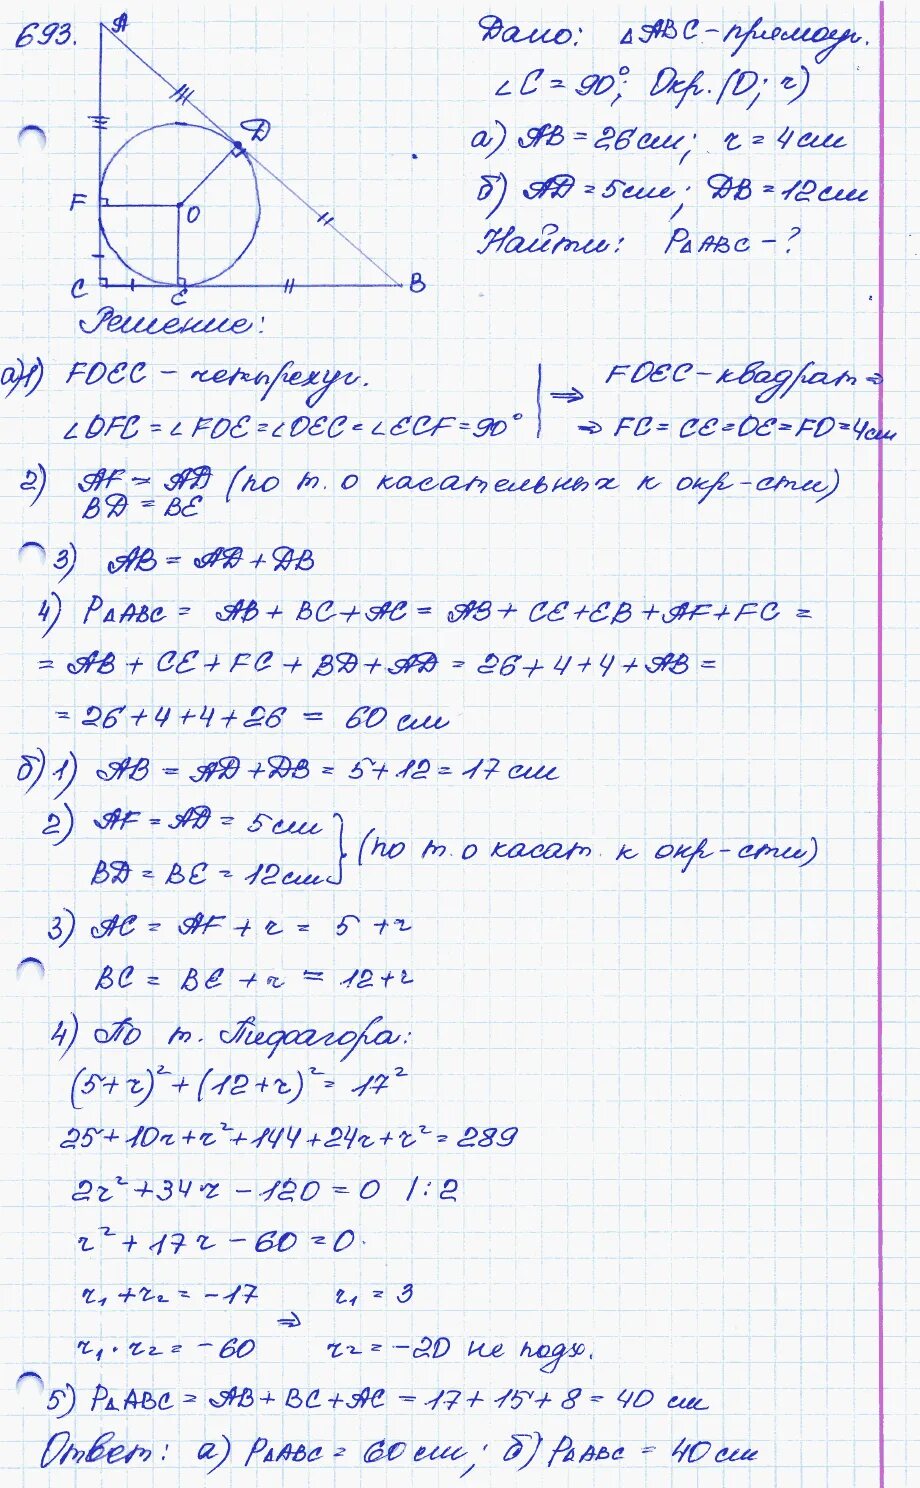 693.
A
D
F
O
C
E
B
Дано: △ABC - прямоуг.
∠C = 90°; Окр. (O; r)
а) AB = 26 см; r = 4 см
б) AD = 5 см; DB = 12 см
Найти: P△ABC - ?
Решение:
а) 1) FOEC - четырехуг.
∠OFC = ∠FOE = ∠OEC = ∠ECF = 90°
⇒ FOEC - квадрат ⇒
⇒ FC = CE = OE = FO = 4 см
2) AF = AD (по т. о касательных к окр-сти)
BD = BE
3) AB = AD + DB
4) P△ABC = AB + BC + AC = AB + CE + EB + AF + FC =
= AB + CE + FC + BD + AD = 26 + 4 + 4 + AB =
= 26 + 4 + 4 + 26 = 60 см
б) 1) AB = AD + DB = 5 + 12 = 17 см
2) AF = AD = 5 см
BD = BE = 12 см
} (по т. о касат. к окр-сти)
3) AC = AF + r = 5 + r
BC = BE + r = 12 + r
4) По т. Пифагора:
(5 + r)² + (12 + r)² = 17²
25 + 10r + r² + 144 + 24r + r² = 289
2r² + 34r - 120 = 0 /:2
r² + 17r - 60 = 0
r₁ + r₂ = -17 r₁ = 3
⇒
r₁ · r₂ = -60 r₂ = -20 не подх.
5) P△ABC = AB + BC + AC = 17 + 15 + 8 = 40 см
Ответ: а) P△ABC = 60 см; б) P△ABC = 40 см